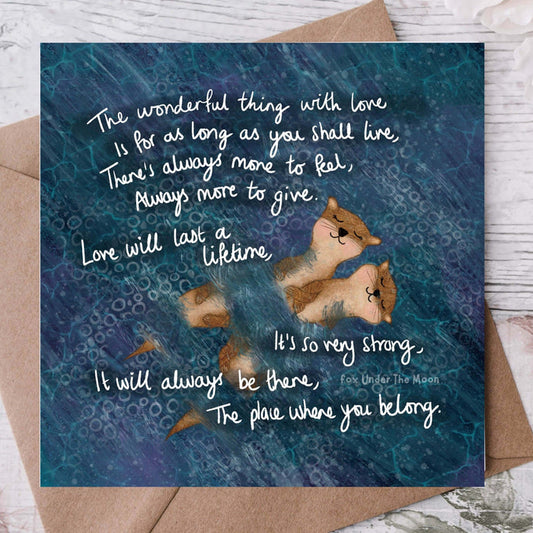 The wonderful thing with love
Is for as long as you shall live,
There's always more to feel,
Always more to give.
Love will last a
lifetime,
It's so very strong,
It will always be there,
Fox Under The Moon
The place where you belong.